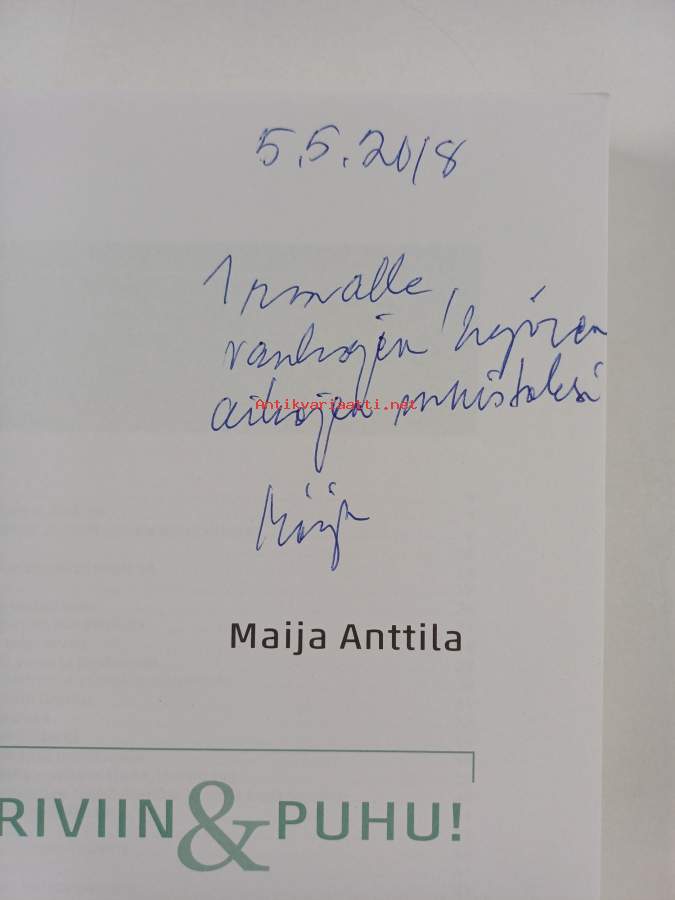 5.5.2018
Irmalle,
vanhojen hyvien
aikojen muistoksi
Antikvariaatti.net
Maija
Maija Anttila
RIVIIN & PUHU!